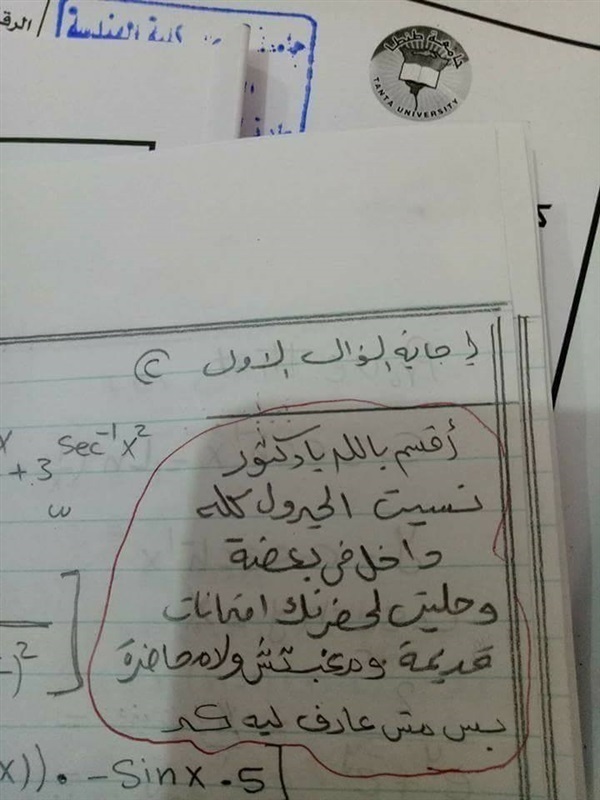 كلية الهندسة
جامعة طنطا
TANTA UNIVERSITY
إجابة السؤال الاول C
أقسم بالله يا دكتور
نسيت الجدول كله
داخل فى بعضة
وحليت لحضرتك امتحانات
قديمة ومغبتش ولا محاضرة
بس مش عارف ليه كده
x + 3 sec⁻¹x²
)²]
x)) . -Sinx . 5